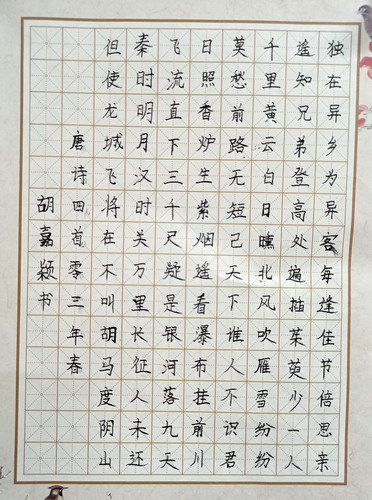 独在异乡为异客每逢佳节倍思亲
遥知兄弟登高处遍插茱萸少一人
千里黄云白日曛北风吹雁雪纷纷
莫愁前路无短己天下谁人不识君
日照香炉生紫烟遥看瀑布挂前川
飞流直下三千尺疑是银河落九天
秦时明月汉时关万里长征人未还
但使龙城飞将在不叫胡马度阴山
唐诗四首零三年春
胡嘉颖书